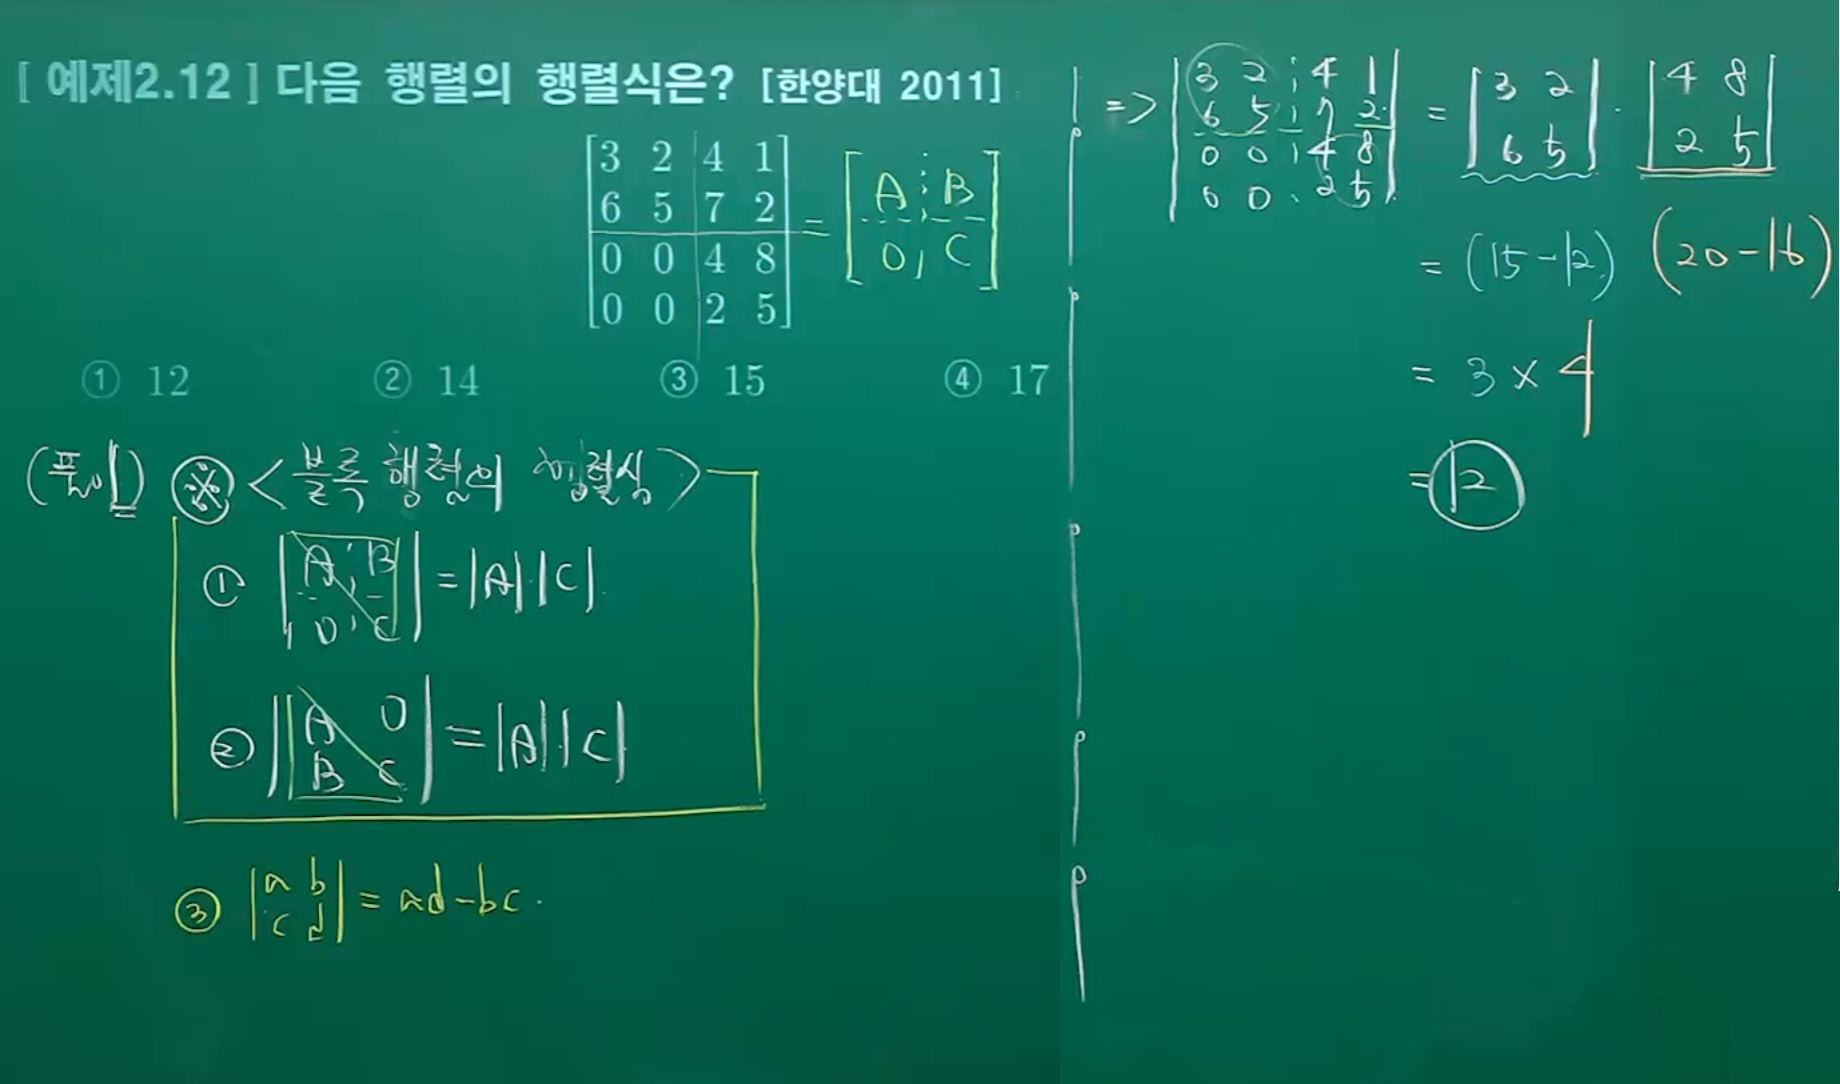 [ 예제2.12 ] 다음 행렬의 행렬식은? [한양대 2011]
[3 2 4 1
6 5 7 2
0 0 4 8
0 0 2 5] = [A B
0 C]
① 12 ② 14 ③ 15 ④ 17
(풀이) ※ <블록 행렬의 행렬식>
① |A B
0 C| = |A| |C|
② |A 0
B C| = |A| |C|
③ |a b
c d| = ad-bc.
=> |3 2 4 1
6 5 7 2
0 0 4 8
0 0 2 5| = |3 2
6 5| · |4 8
2 5|
= (15-12) (20-16)
= 3 × 4
= 12